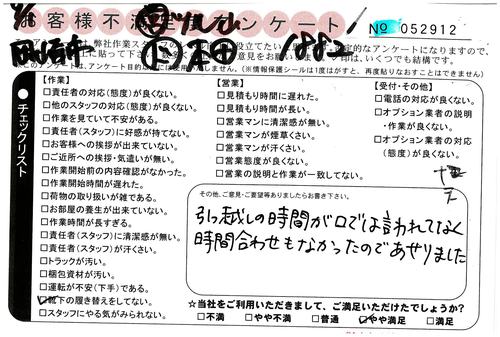 お客様不満足度アンケート
No 052912
弊社作業スタッフの
役立てたい
定的なアンケートになりますので、
(※情報保護シールは1度はがすと、再度貼りなおすことはできません)
チェックリスト
【作業】
□責任者の対応(態度)が良くない。
□他のスタッフの対応(態度)が良くない。
□作業を見ていて不安がある。
□責任者(スタッフ)に好感が持てない。
□お客様への挨拶が出来ていない。
□ご近所への挨拶・気遣いが無い。
□作業開始前の内容確認がなかった。
□作業開始時間が遅れた。
□荷物の取り扱いが雑である。
□お部屋の養生が出来ていない。
□作業時間が長すぎる。
□責任者(スタッフ)に清潔感が無い。
□責任者(スタッフ)が汗くさい。
□トラックが汚い。
□梱包資材が汚い。
□運転が不安(下手)である。
☑靴下の履き替えをしてない。
□スタッフにやる気がみられない。
【営業】
□見積もり時間に遅れた。
□見積もり時間が長い。
□営業マンに清潔感が無い。
□営業マンが煙草くさい。
□営業マンが汗くさい。
□営業態度が良くない。
□営業の説明と作業が一致してない。
【受付・その他】
□電話の対応が良くない。
□オプション業者の説明
・作業が良くない。
□オプション業者の対応
(態度)が良くない。
その他、ご意見・ご要望等ありましたらお書き下さい。
引っ越しの時間が口では言われてなく
時間合わせもなかったのであせりました
☆当社をご利用いただきまして、ご満足いただけたでしょうか?
□不満 □やや不満 □普通 ☑やや満足 □満足